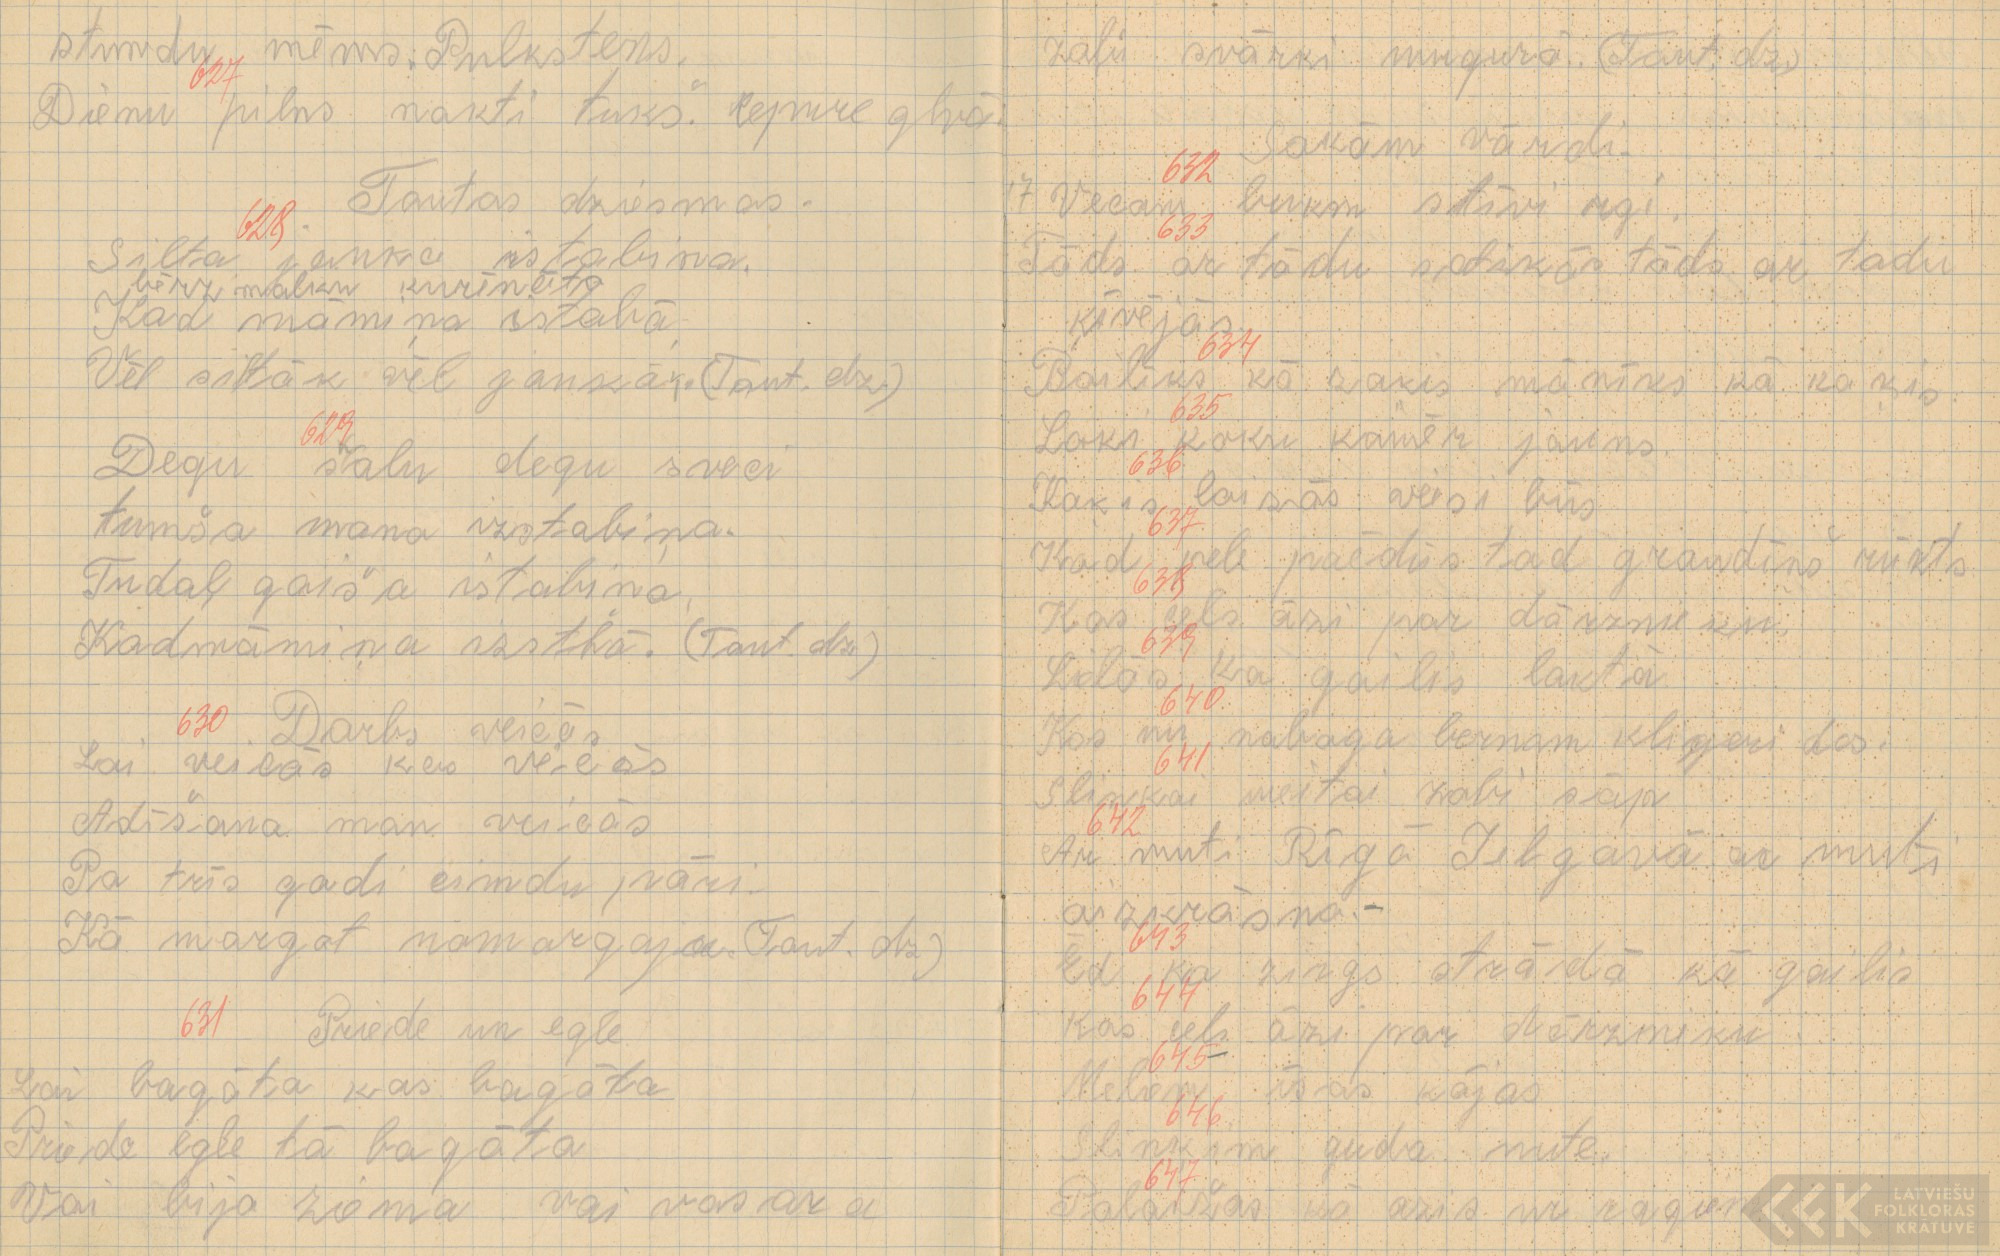 stundu mēms. Pulkstens.
627
Dienu pilns nakti tukš. Cepure glvā.
Tautas dziesmas.
628
Silta jauka istabiņa.
bērzi malku kurināta
Kad māmiņa istabā
Vēl siltāk vēl jaukāk. (Taut. dz.)
629
Degu skalu degu sveci
tumša mana izstabiņa.
Tudaļ gaiša istabiņa,
Kadmāmiņa izstbā. (Taut. dz)
630 Darbs veicās
Lai veicās kas veicās
Adīšana man veicās
Pa trīs gadi cimdu pāri
Kā margot namargaja. (Taut. dz)
631 Priede un egle
Lai bagāta kas bagāta
Priede egle tā bagāta
Vai bija ziema vai vasara
zaļi svārki mugurā. (Taut. dz)
Sakām vārdi.
632
17 Vecam bukm stīvi ragi.
633
Tāds ar tādu satikās tāds ar tadu
ķivējās.
634
Bailīks kā zakis mānīks kā kaķis
635
Loki koku kāmēr jauns.
636
Kaķis laizās viesi būs
637
Kad pele paēdūs tad graudiņš rūkts
638
Kas cels āzi par dārznieku.
639
Lidās ka gailis laktā
640
Kas nu nabaga bernam kliņģeri dos.
641
Slinkai meitai zobi sāp
642
Ar muti Rīgā Jelgavā ar muti
aizkrāsna.-
643
Ēd ka zirgs strādā kā gailis
644
Kas cels āzi par dārzniku.
645
Meļem īsas kājas
646
Slinkim guda mute.
647
Palaižas kā azis uz ragiem
LATVIEŠU
FOLKLORAS
KRĀTUVE